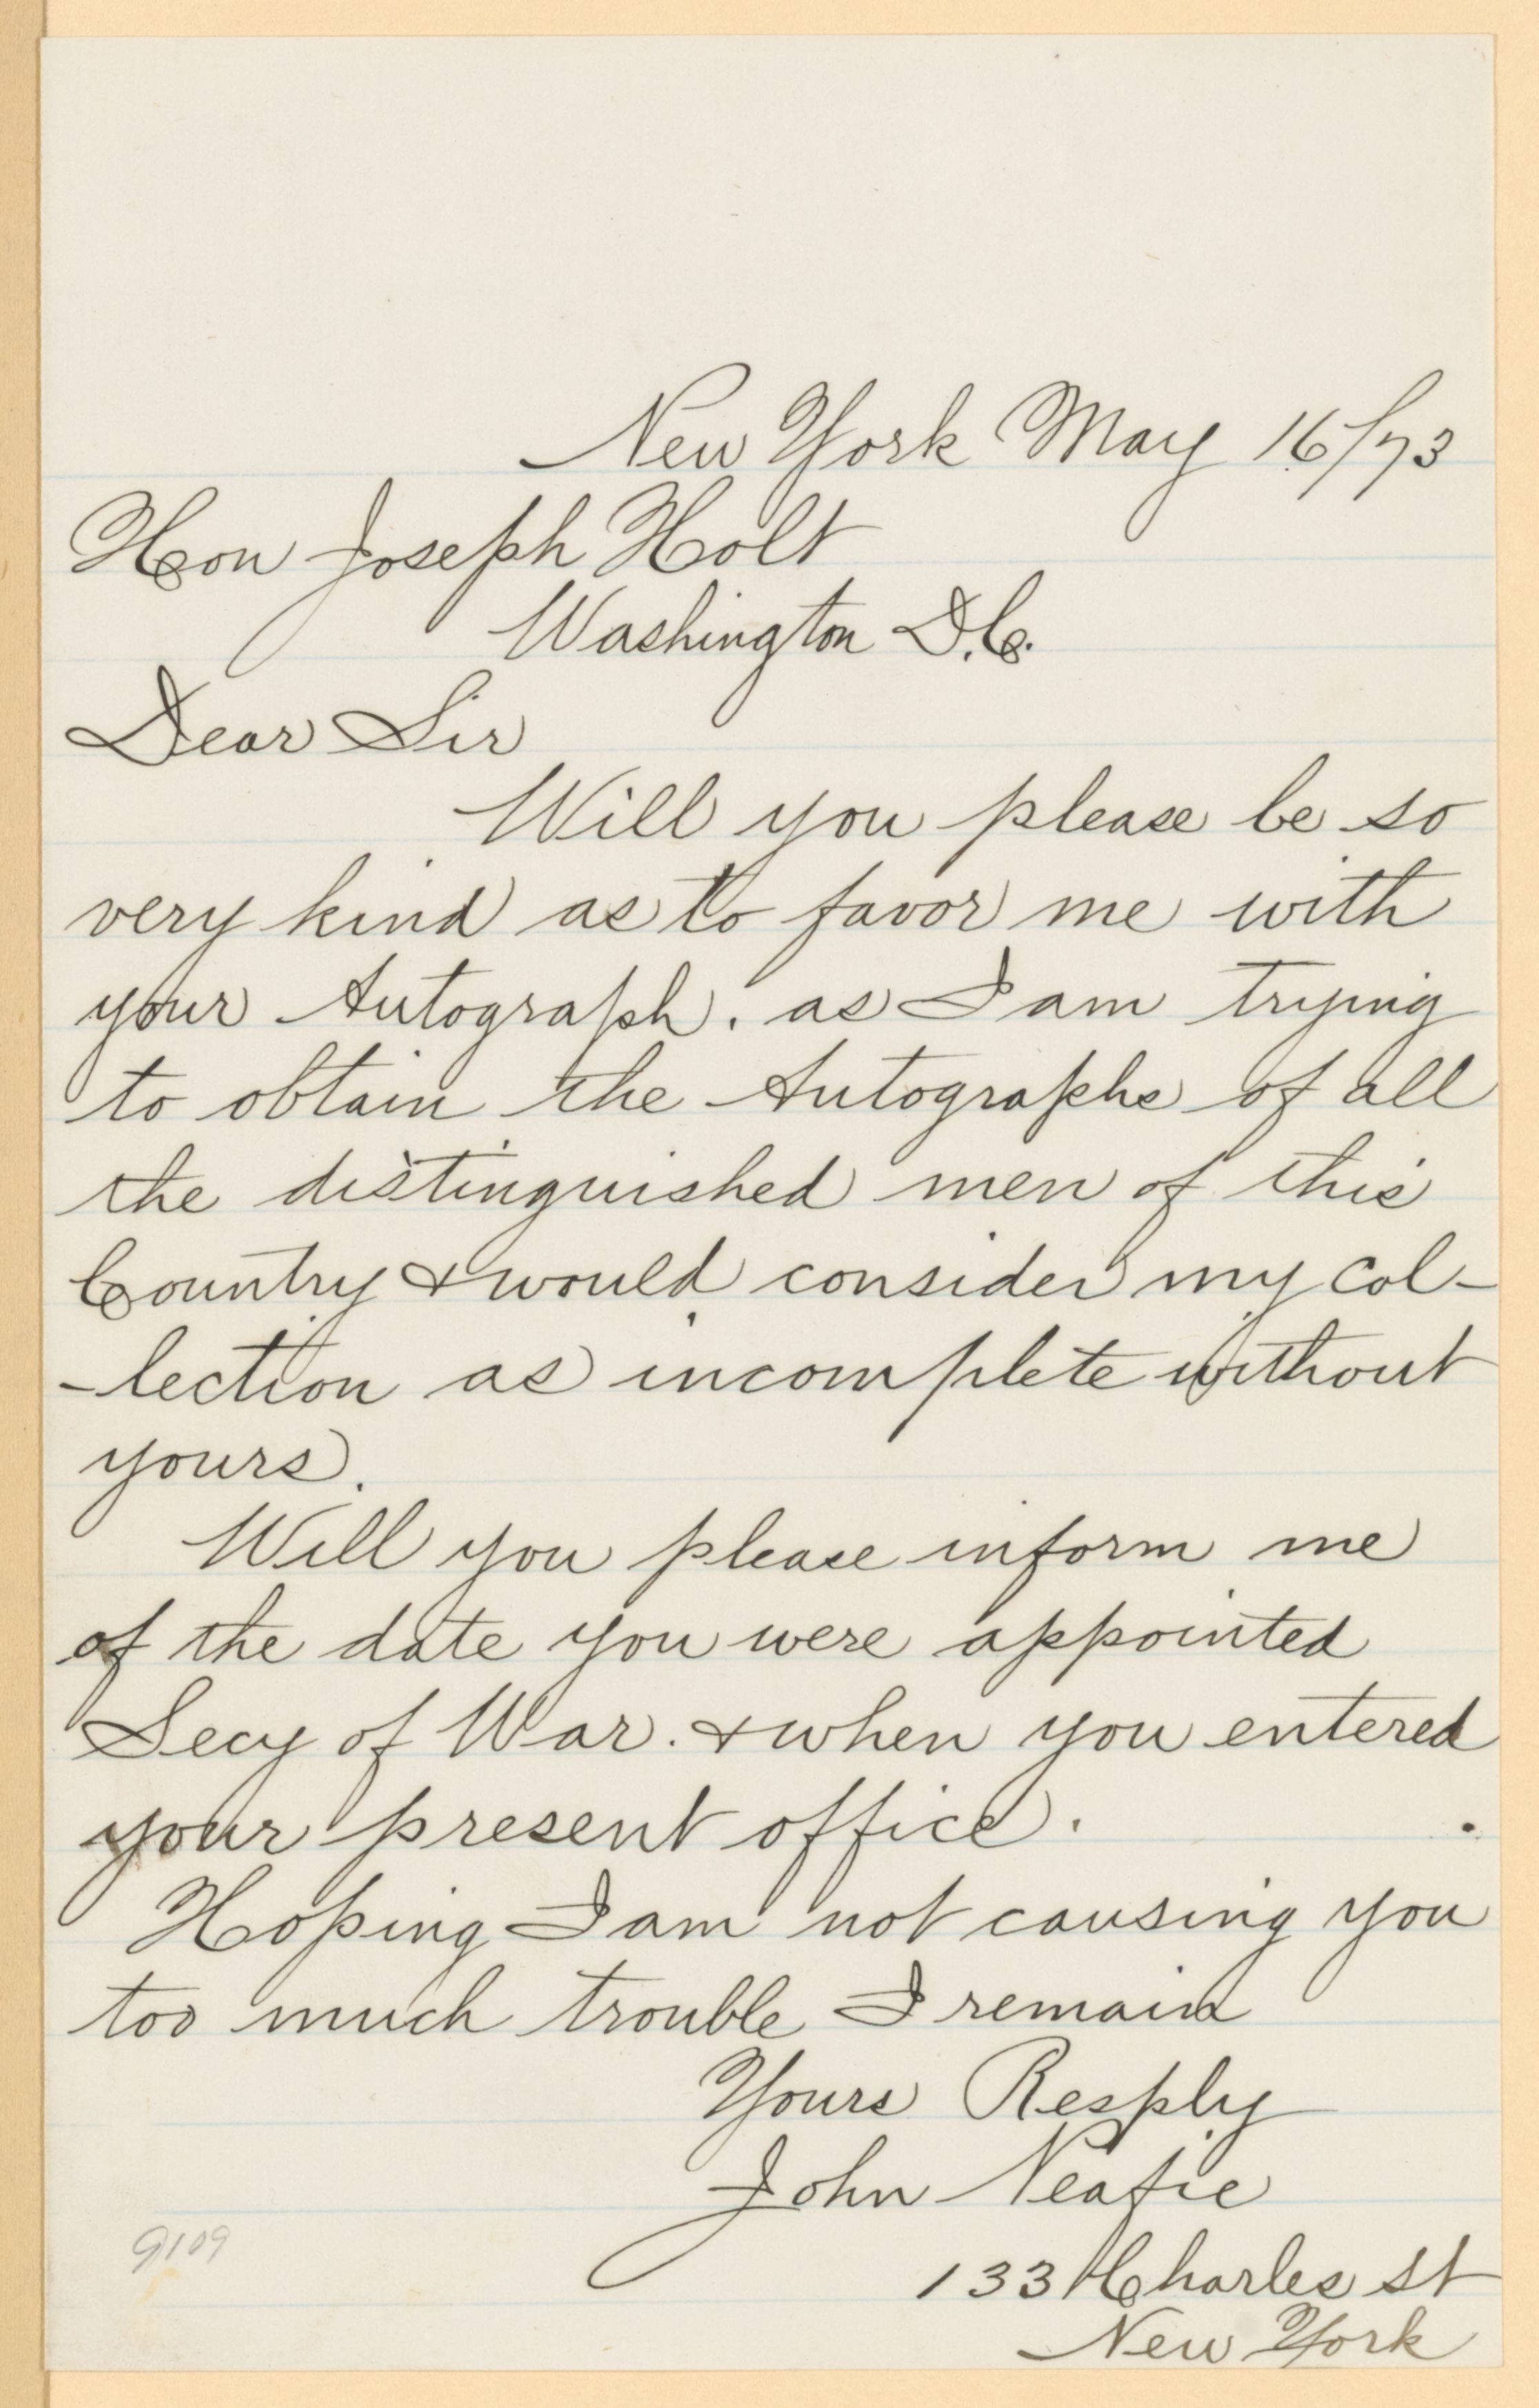 New York May 16/73
Hon Joseph Holt
Washington D.C.
Dear Sir
Will you please be so
very kind as to favor me with
your Autograph. as I am trying
to obtain the Autographs of all
the distinguished men of this
Country & would consider my col-
-lection as incomplete without
yours.
Will you please inform me
of the date you were appointed
Secy of War. & when you entered
your present office.
Hoping I am not causing you
too much trouble I remain
Yours Resply
John Neafie
133 Charles St
New York
9109